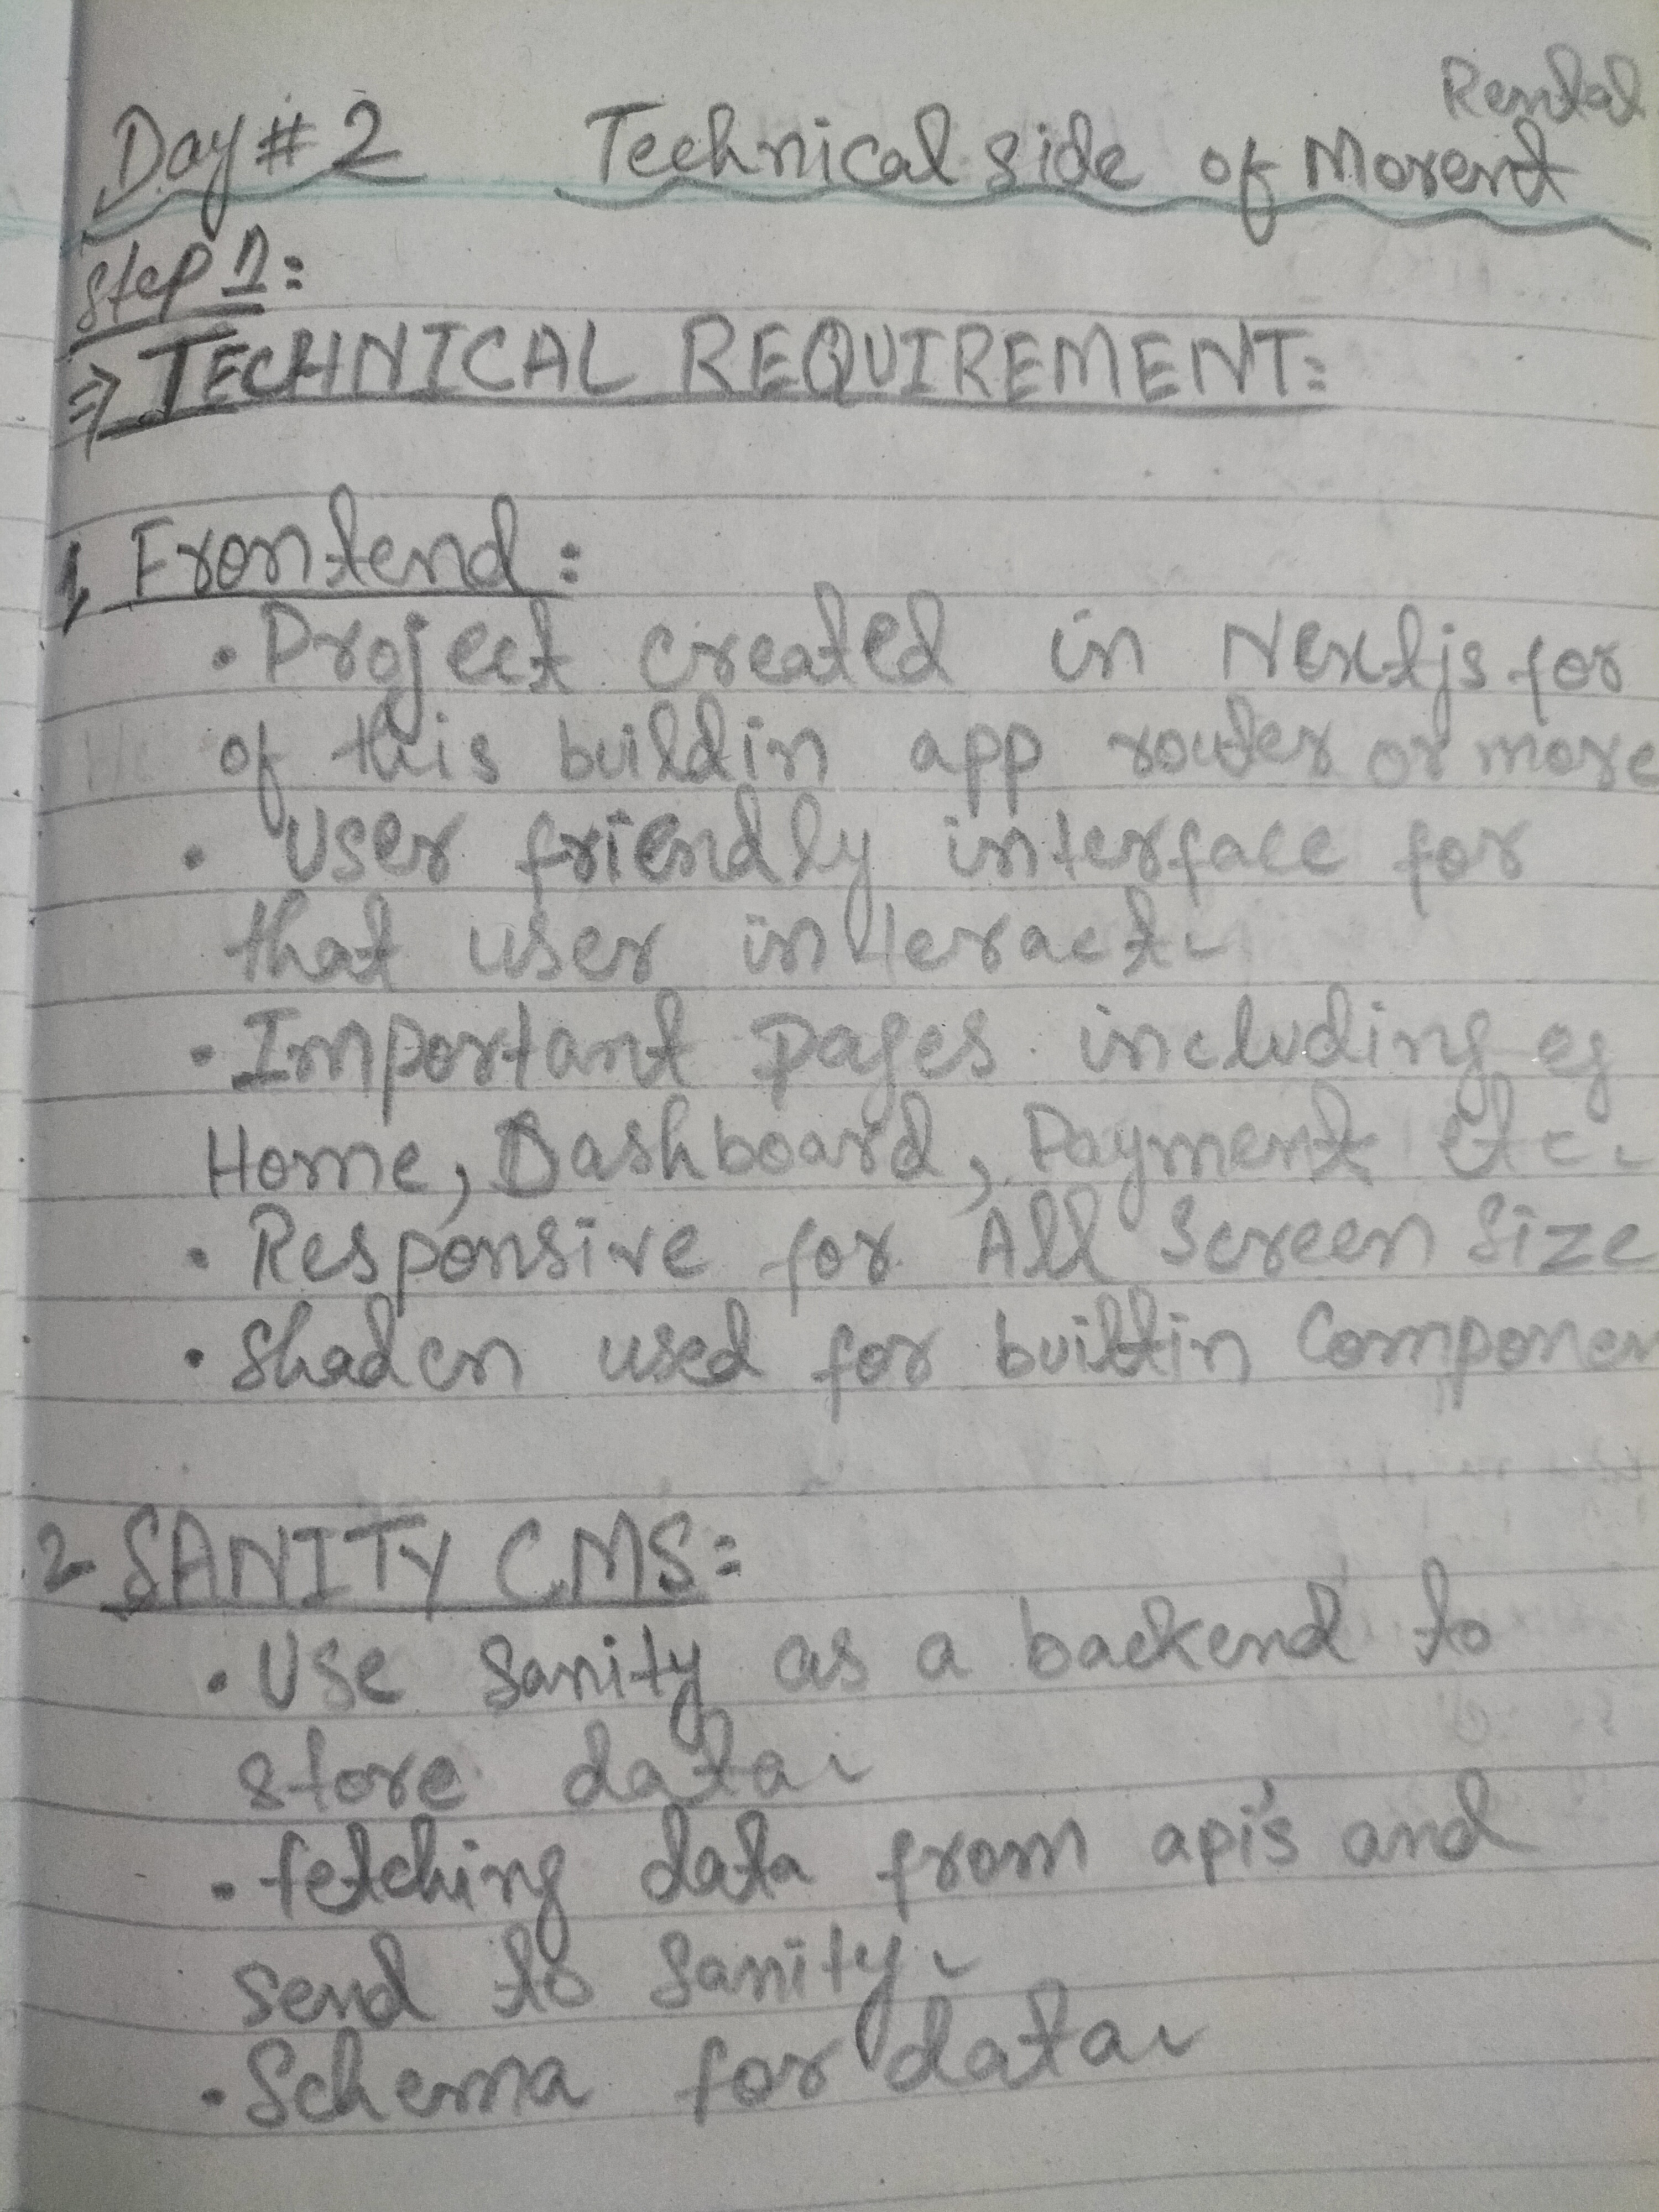 Rental
Day # 2 Technical side of Morent
Step 1:
⇒ TECHNICAL REQUIREMENT:
1, Frontend:
• Project created in Nextjs for
of this buildin app router or more
• User friendly interface for
that user interact.
• Important pages including eg
Home, Dashboard, Payment etc.
• Responsive for All Screen Size
• Shadcn used for builtin Componen
2- SANITY CMS:
• Use Sanity as a backend to
store data.
• fetching data from api's and
send to Sanity.
• Schema for data.